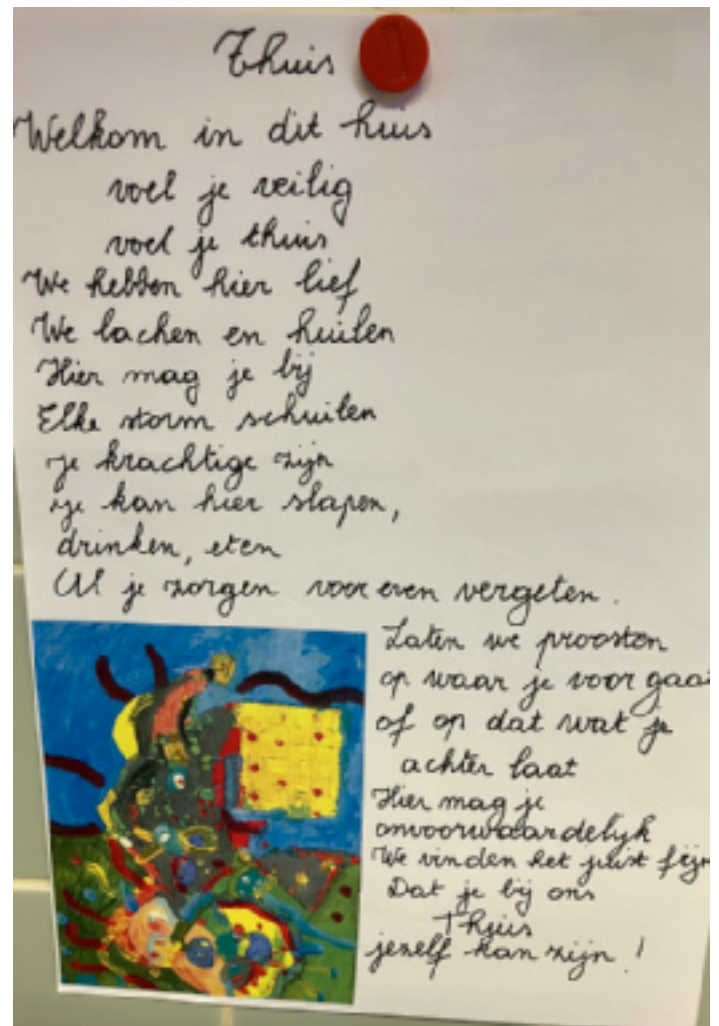 Thuis
Welkom in dit huis
voel je veilig
voel je thuis
We hebben hier lief
We lachen en huilen
Hier mag je bij
Elke storm schuilen
je krachtige zijn
je kan hier slapen,
drinken, eten
Al je zorgen voor even vergeten.
Laten we proosten
op waar je voor gaat
of op dat wat je
achter laat
Hier mag je
onvoorwaardelyk
We vinden het juist fijn
Dat je bij ons
Thuis
jezelf kan zijn!